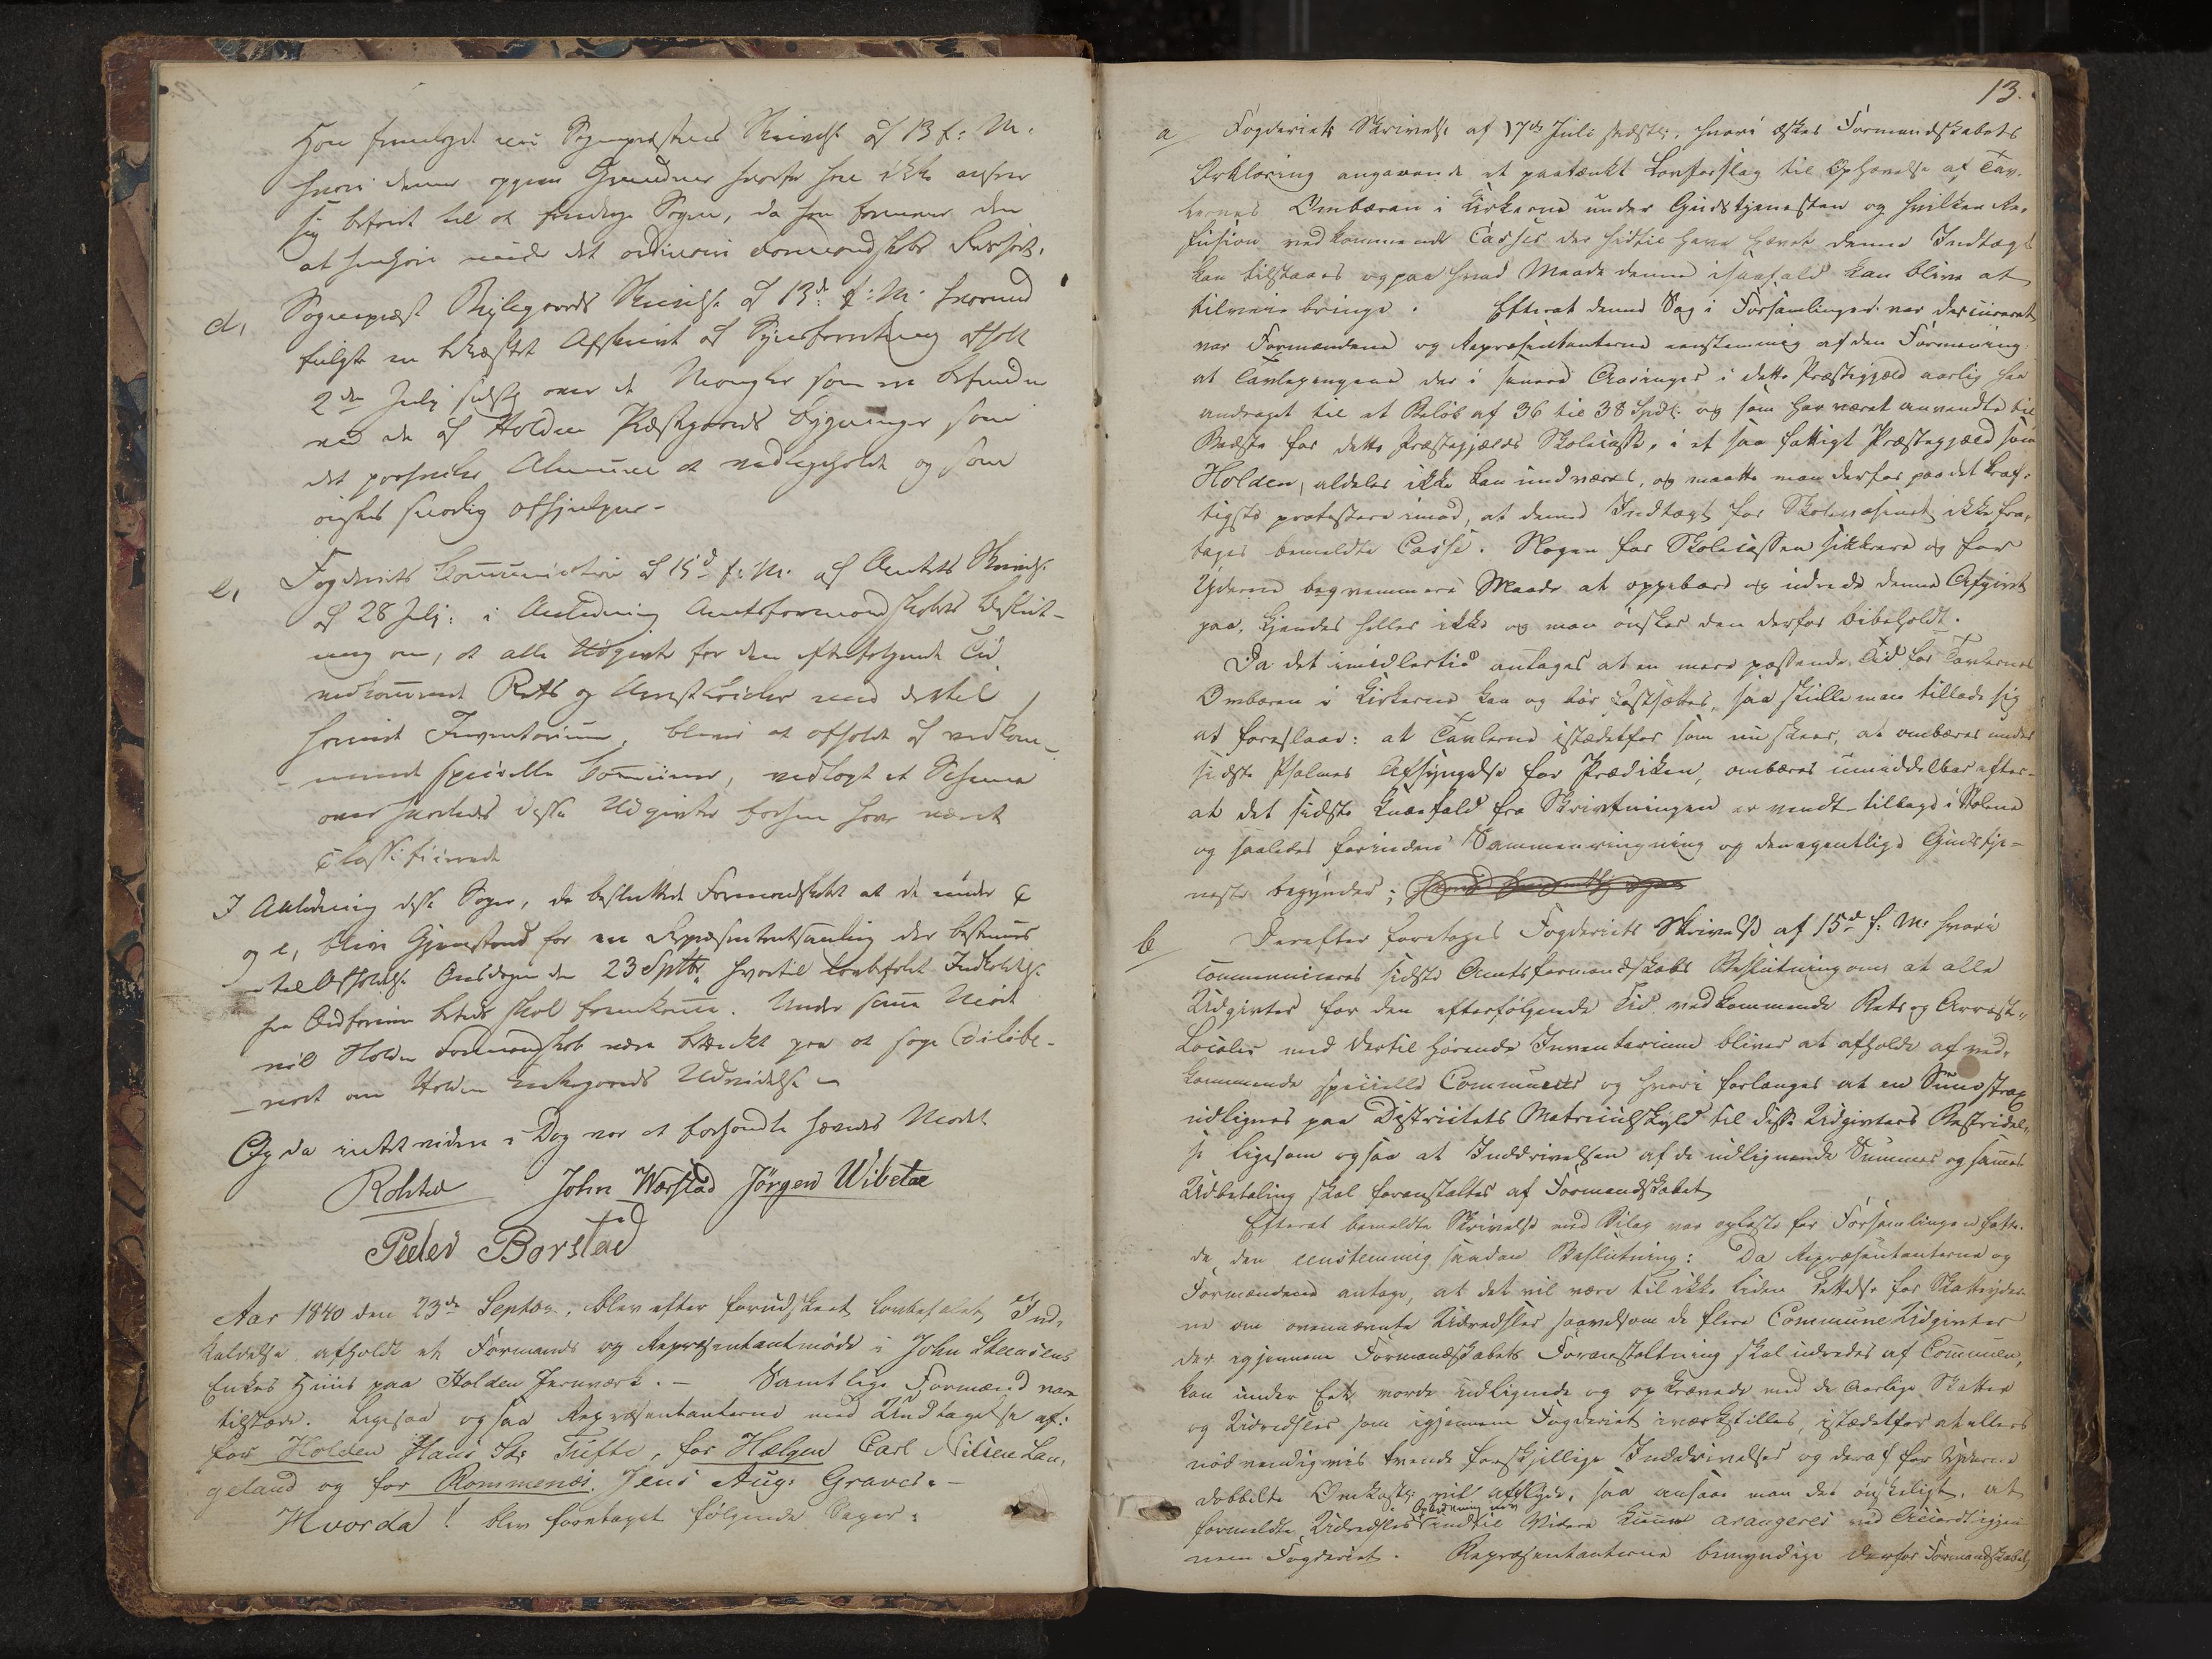 Sognepræstens Skrivelse af 13 f: M.
hvori denne opgiver Grundene hvorfor han ikke anseer
sig beføiet til at foredrage Sagen, da han formener den
at henhøre under det ordinaire Formandskabs Ressort.
d, Sognepræst Skrivelse af 13d f: M. hvorved
fulgte en bekræftet Afskrivt af Synsforretning afholdt
2den July sidstl: over de Mangler som ere befundne
ved de af Holden Præstegaards Bygninger som
det paahviler Almuen at vedligeholde og som
ønskes snarlig afhjulpne-
e, Fogderiets Communication af 15d f: M. af Amtets Skrivelse
af 28 July: i Anledning Amtsformandskabets Beslut-
ning om, at alle Udgivter for den efterfølgende Tid
vedkommende Rets og Arrestlocaler med dertil
hørende Inventarium, bliver at afholde af vedkom-
mende specielle Commune, vedlagt et Schema
over hvorledes disse Udgivter forhen have været
classificerede
I Anledning disse Sager, da besluttede Formandskabet at de under c
og e, blive Gjenstand for en Repræsentantsamling der bestemmes
til Afholdelse Onsdagen den 23 Septbr, hvortil lovbefalet Indkaldelse
fra Ordføreren skal fremkomme. Under samme Møde
vil Holden Formandskab være betænkt paa at
om Holden Kirkegaards Udvidelse
Og da intet videre i Dag var at forhandle hævedes Mødet
John Worstad Jörgen Wibetoe
Peder Borstad
Aar 1840 den 23de Septbr. blev efter forudskeet lovbefalet Ind-
kaldelse afholdt et Formands og Repræsentantmøde i John Steensens
Enkes Huus paa Holden Jernværk. - Samtlige Formænd vare
tilstæde. Ligesaa ogsaa Repræsentanterne med Undtagelse af:
for Holden Hans Hs: Tufte, for Hælgen Carl Nilsen Lan-
geland og for Rommenæs Jens Aug: Graver. -
Hvorda! blev foretaget følgende Sager:
13.
a Fogderiets Skrivelse af 17de Juli sidstl:, hvori æskes Formandskabets
Erklæring angaaende et paatænkt Lovforslag til Ophævelse af Tav-
lernes Ombæren i Kirkerne under Gudstjenesten og hvilken Re-
fusion vedkommende Casser der hidtil have hævet denne Indtægt
kan tilstaaes og paa hvad Maade denne isaafald kan blive at
tilveiebringe. Efterat denne Sag i Forsamlingen var discuteret
var Formændene og Repræsentanterne eenstemmig af den Formening:
at Tavlepengene der i senere Aaringer i dette Præstegjæld aarlig har
andraget til et Beløb af 36 til 38 Spdl: og som har været anvendte til
Bedste for dette Præstegjælds Skolecasse, i et saa fattigt Præstegjæld som
Holden, aldeles ikke kan undværes, og maatte man derfor paa det kraf-
tigste protestere imod, at denne Indtægt for Skolevæsenet ikke fra-
tages bemeldte Casse. Nogen for Skolecassen sikkrere og for
Yderne beqvemmere Maade at oppebære og udrede denne Afgivt
paa, kjendes heller ikke og man ønsker den derfor bibeholdt.
Da det imidlertid antages at en mere passende Tid for Tavlernes
Ombæren i Kirkerne kan og bør fastsættes, saa skulle man tillade sig
at foreslaae: at Tavlerne istædetfor som nu skeer, at ombæres under
sidste Psalmes Afsyngelse før Prædiken, ombæres umiddelbar efter-
at det sidste Knæfald fra Skriftningen er vendt tilbage i Stolene
og saaledes forinden Sammenringning og den egentlige Gudstje-
neste begynder;
b Derefter foretoges Fogderiets Skrivelse af 15d f: M: hvori
communiceres sidste Amtsformandskabs Beslutning om, at alle
Udgivter for den efterfølgende Tid vedkommende Rets og Arrest-
Locale med dertil hørende Inventarium bliver at afholde af ved-
kommende specielle Communer og hvori forlanges at en Sum strax
udlignes paa Districtets Matriculskyld til disse Udgivters Bestridel-
se ligesom ogsaa at Inddrivelsen af de udlignende Summer og sammes
Udbetaling skal foranstaltes af Formandskabet,
Efterat bemeldte Skrivelse med Bilag var oplæste for Forsamlingen fatte-
de den eenstemmig saadan Beslutning: Da Repræsentanterne og
Formændene antage, at det vil være til ikke liden Lettelse for Skatteyder-
ne om ovennævnte Udredsler saavelsom de flere Commune Udgivter
der igjennem Formandskabets Foranstaltning skal udredes af Communen,
kan under Eet vorde udlignede og opkrævede med de aarlige Skatter
og Udredsler som igjennem Fogderiet iværkstilles, istædetfor at ellers
nødvendigvis tvende forskjellige Inddrivelser og deraf for Yderne
dobbelte Omkostn: vil afflyde, saa ansaae man det ønskeligt, at
formeldte Udredslers Opkrævning indtil Videre kunne arangeres ved Accord igjen-
nem Fogderiet. Repræsentanterne bemyndige derfor Formandskabet,